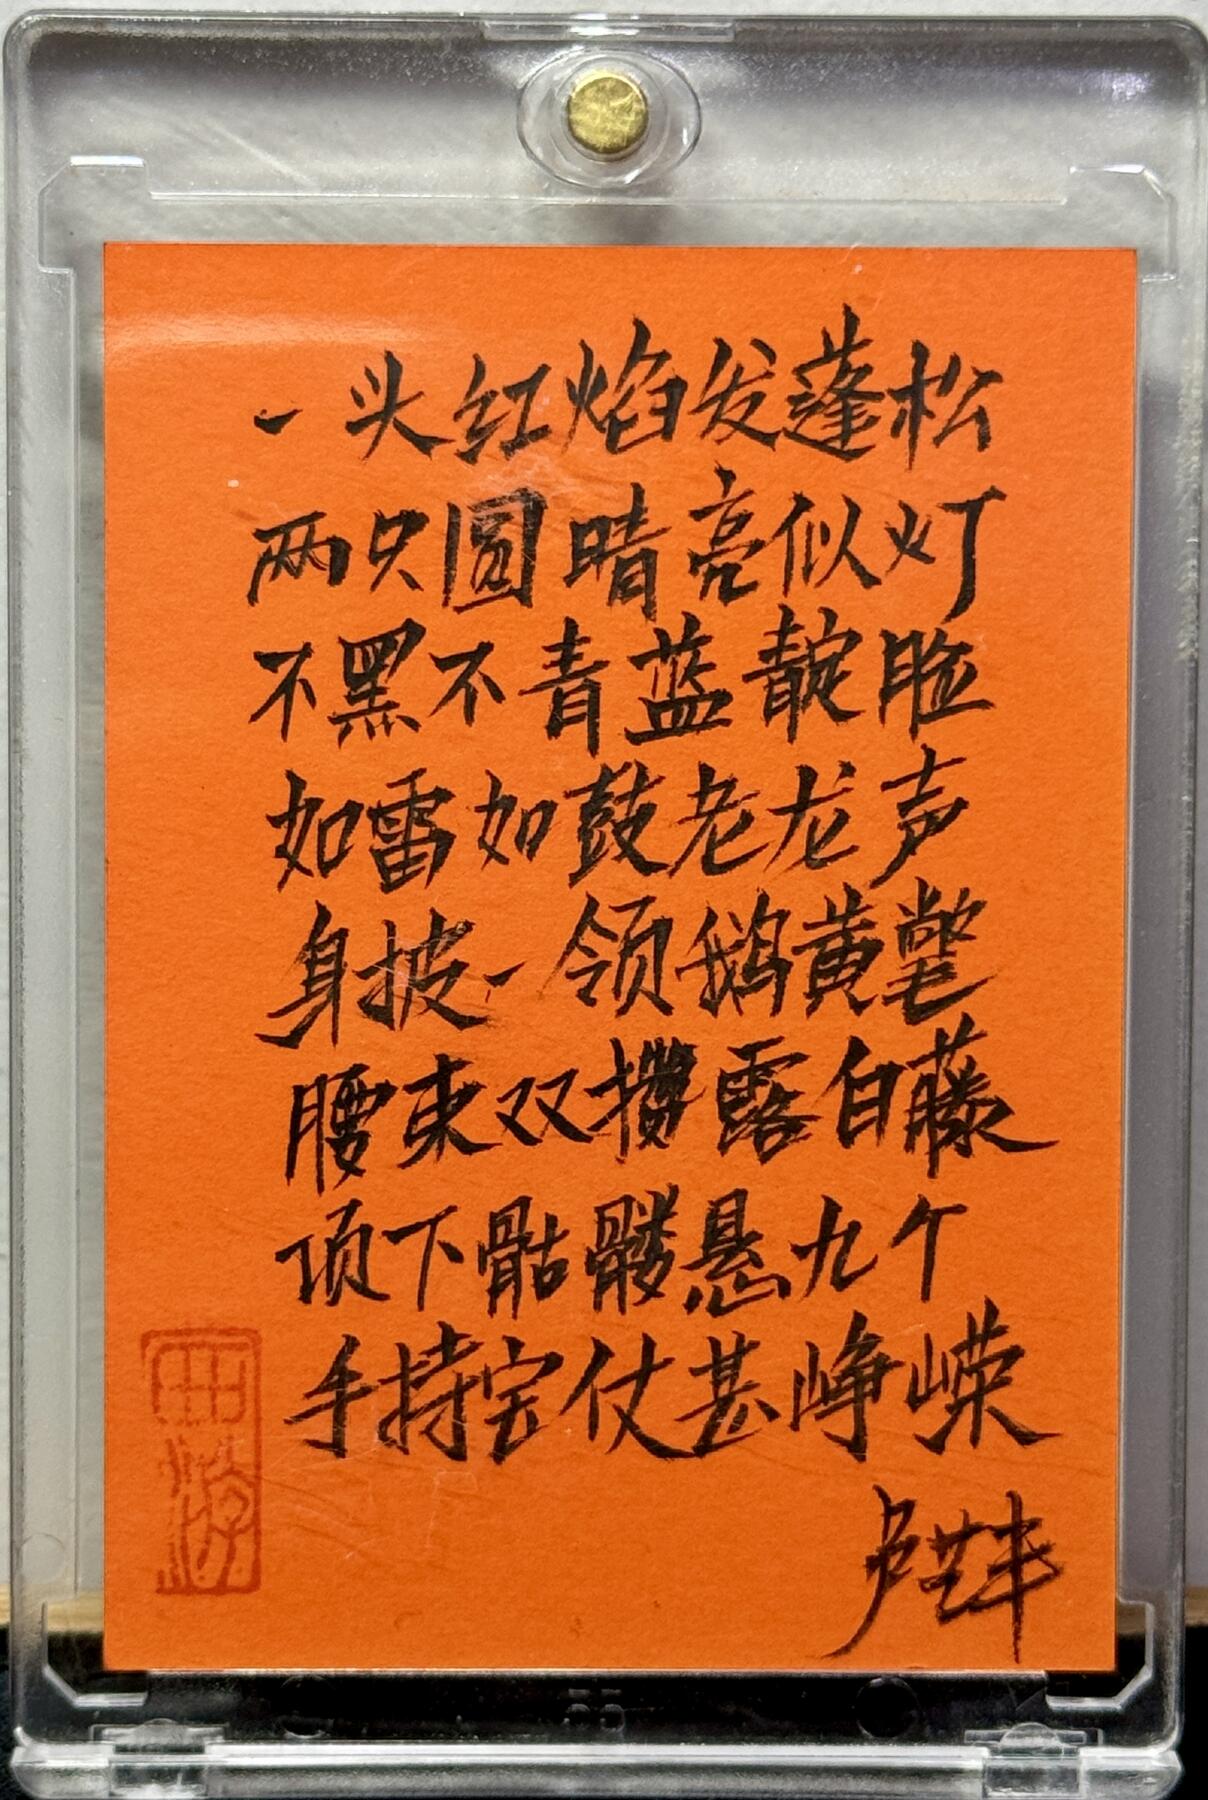 一头红焰发蓬松
两只圆晴亮似灯
不黑不青蓝靛脸
如雷如鼓老龙声
身披一领鹅黄氅
腰束双攒露白藤
项下骷髅悬九个
手持宝仗甚峥嵘
西游